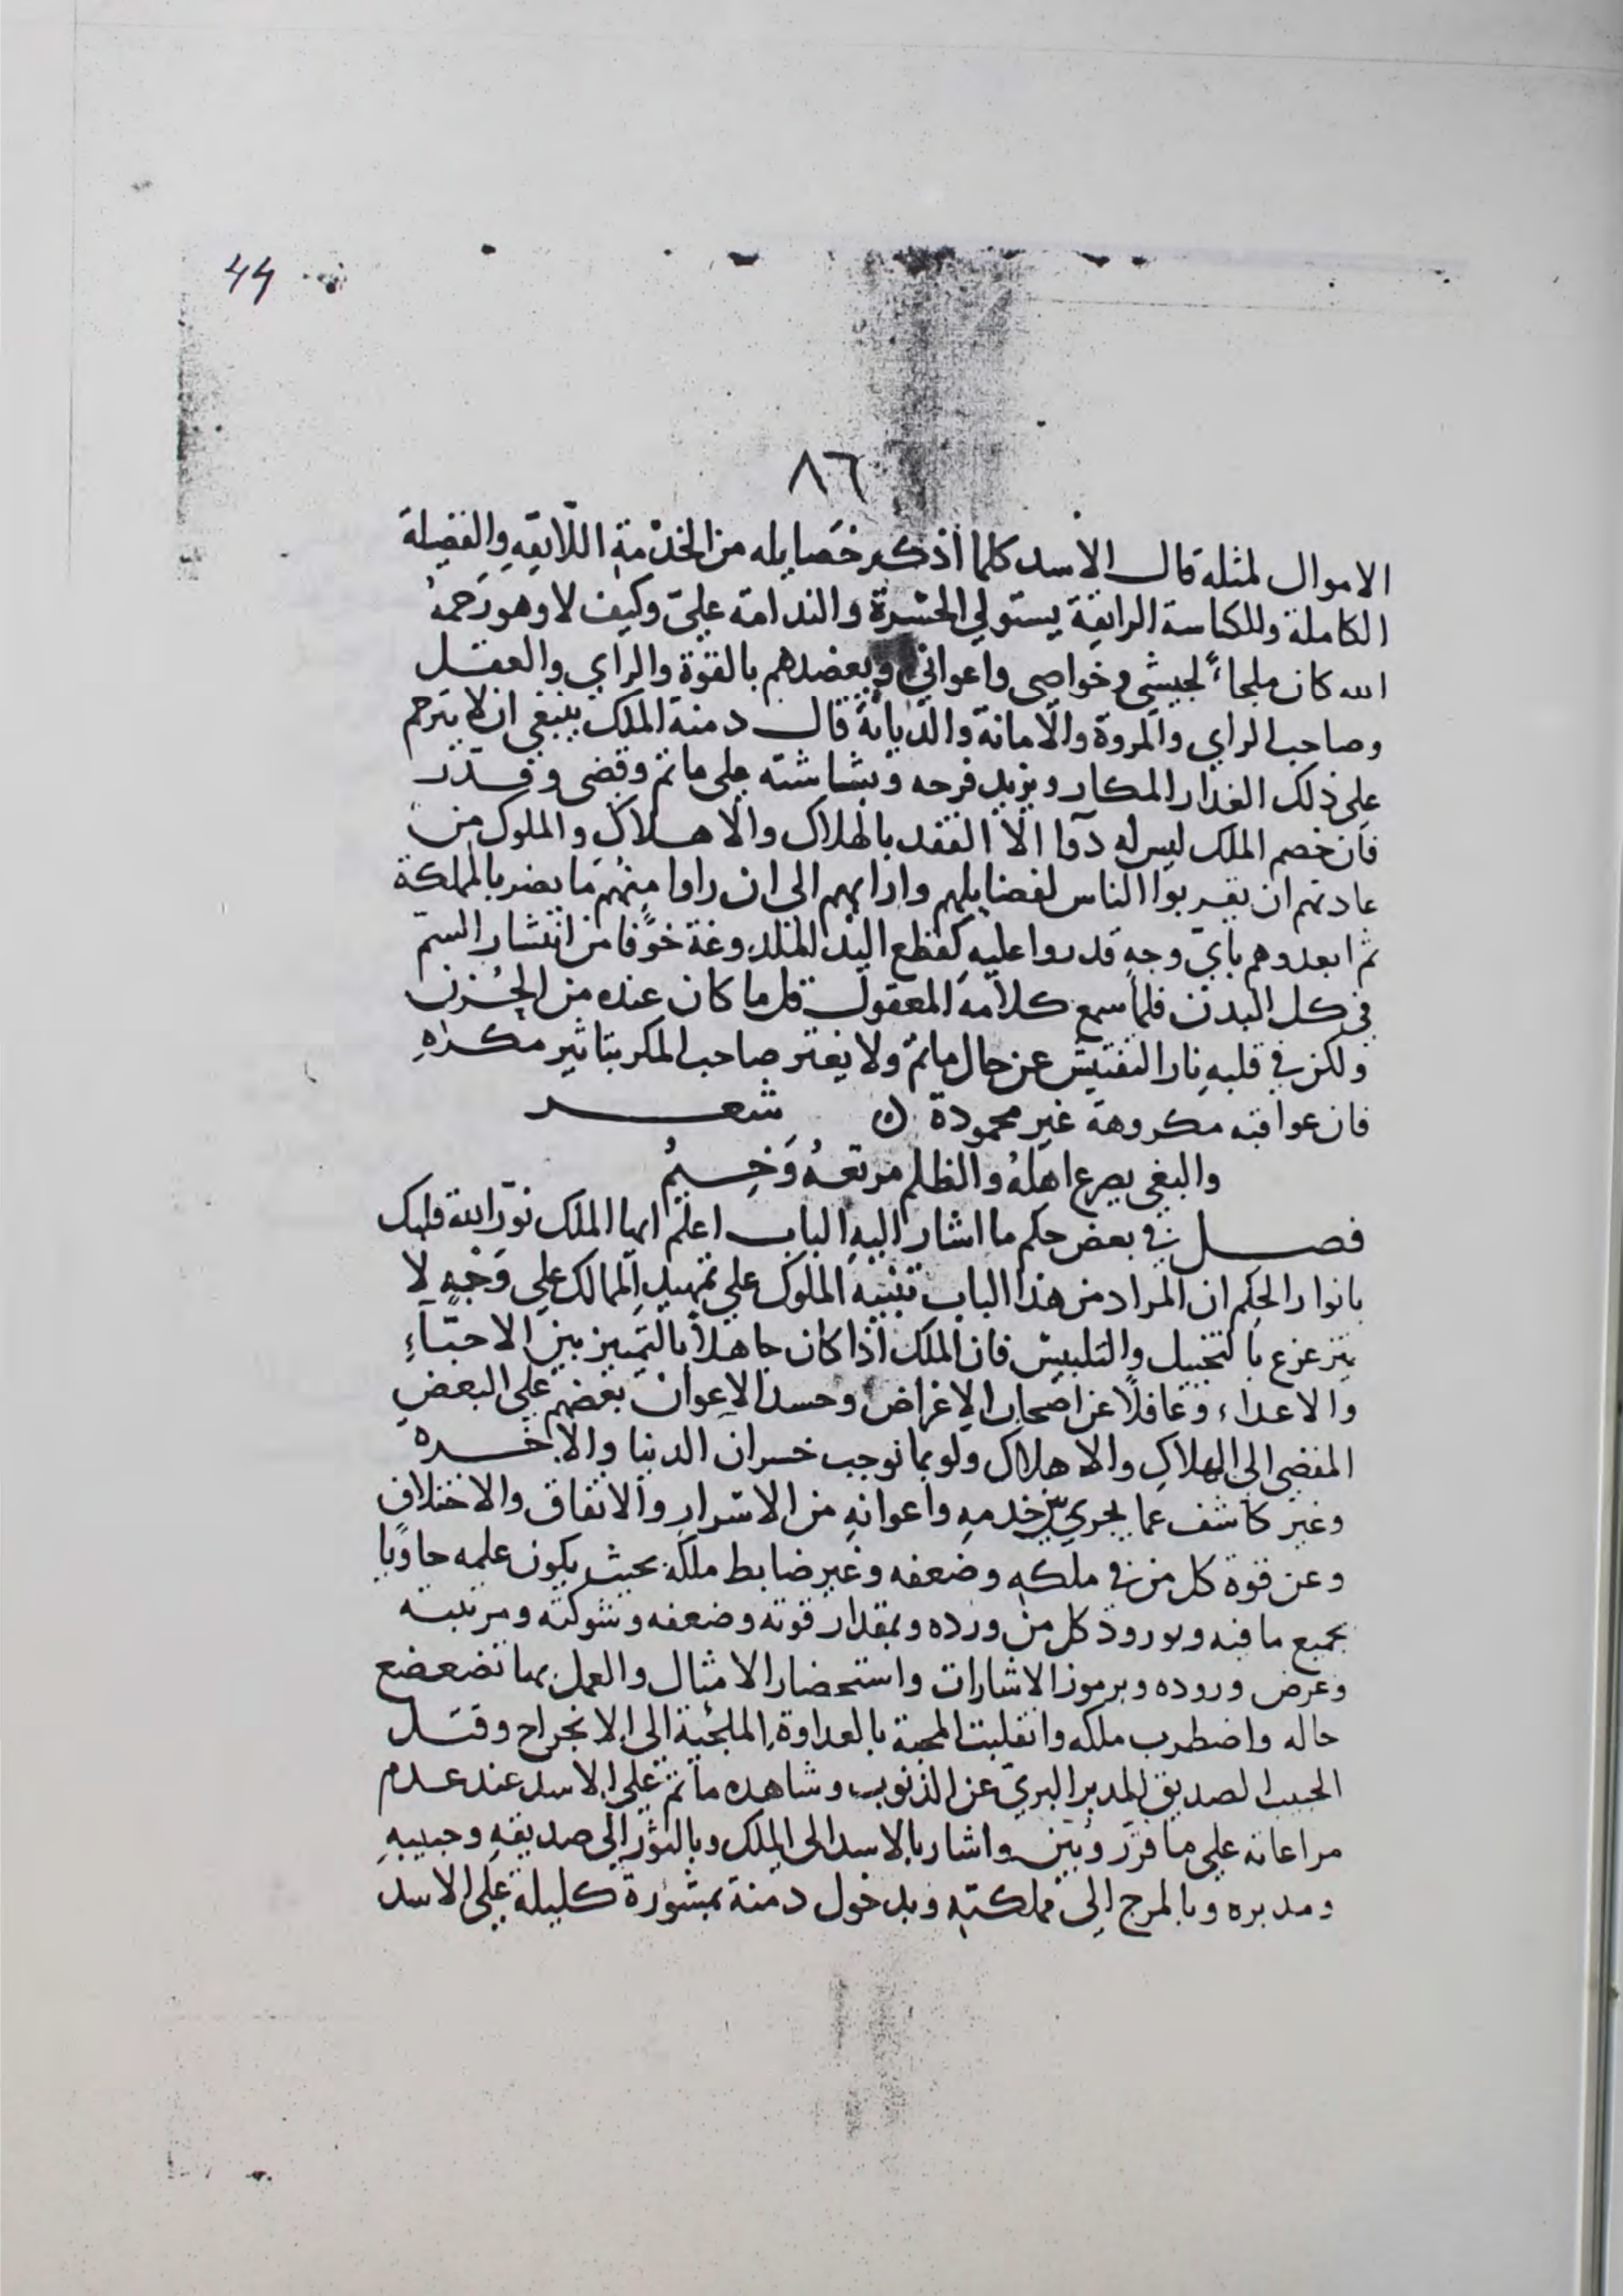 44
٨٦
الاموال لمثله قال الاسد كلما اذكر خصايله من الخدمة اللايقه والفضيلة
الكاملة وللكياسة الرايقة يستولي الحسرة والندامة عليّ وكيف لا وهو رحمه
الله كان ملجاءً لجيشي وخواصي واعواني وبعضدهم بالقوة والراي والعقل
وصاحب الراي والمروة والامانة والديانة قال دمنة الملك ينبغي ان لا يترحم
على ذلك الغدار المكار ويزيد فرحه وبشاشته على ما تم وقضى وقدر
فان خصم الملك ليس له دوا الا الفقد بالهلاك والاهلاك والملوك من
عادتهم ان يقربوا الناس لفضايلهم وارايهم الى ان راوا منهم ما يضر بالمملكة
ثم ابعدوهم باي وجه قدروا عليه كقطع اليد الملدوغة خوفا من انتشار السم
في كل البدن فلما سمع كلامه المعقول قل ما كان عنده من الحزن
ولكن في قلبه نار التفتيش عن حال ما تم ولا يغتر صاحب المكر بتاثير مكره
فان عواقبه مكروهة غير محمودة ن شعر
والبغي يصرع اهله والظلم مرتعه وخيم
فصل في بعض حكم ما اشار اليه الباب اعلم ايها الملك نور الله قلبك
بانوار الحكم ان المراد من هذا الباب تنبيه الملوك على تمهيد الممالك على وجه لا
يتزعزع بالتخييل والتلبيس فان الملك اذا كان جاهلا بالتمييز بين الاحبّآء
والاعداء وغافلا عن اصحاب الاغراض وحسد الاعوان بعضهم على البعض
المفضي الى الهلاك والاهلاك ولو بما توجب خسران الدنيا والاخره
وغير كاشف عما يجري بين خدمه واعوانه من الاسرار والاتفاق والاختلاف
وعن قوة كل من في ملكه وضعفه وغير ضابط ملكه بحيث يكون علمه حاويا
بجميع ما فيه وبورود كل من ورده وبمقدار قوته وضعفه وشوكته ومرتبته
وغرض وروده وبرموز الاشارات واستحضار الامثال والعمل بها تضعضع
حاله واضطرب ملكه وانقلبت المحبة بالعداوة الملجئة الى الانجراح وقتل
الحبيب الصديق المدبر البري عن الذنوب وشاهده ما تم على الاسد عند عدم
مراعاته على ما قرر وبين واشار بالاسد الى الملك وبالثور الى صديقه وحبيبه
ومدبره وبالمرج الى مملكته وبدخول دمنة بمشورة كليلة على الاسد